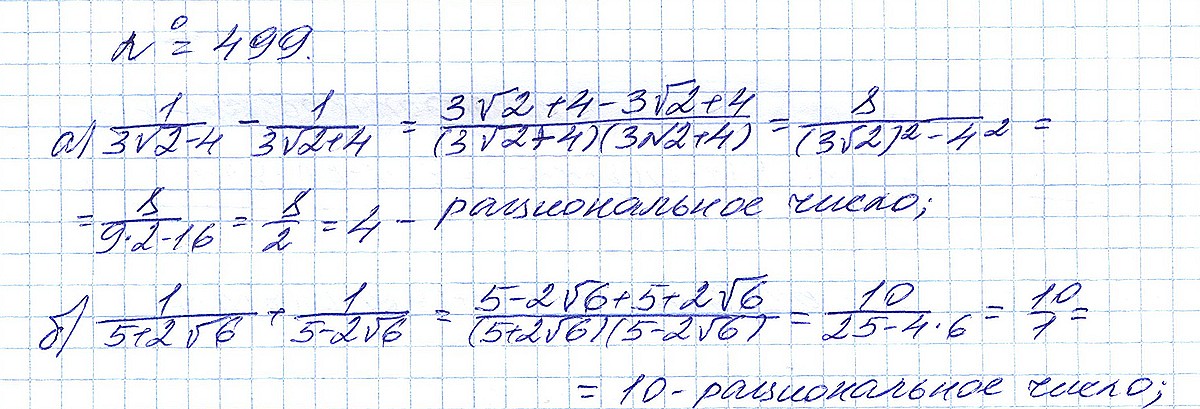 № 499.
а) 1/(3√2-4) - 1/(3√2+4) = (3√2+4-3√2+4)/((3√2+4)(3√2+4)) = 8/((3√2)²-4²) =
= 8/(9·2-16) = 8/2 = 4 - рациональное число;
б) 1/(5+2√6) + 1/(5-2√6) = (5-2√6+5+2√6)/((5+2√6)(5-2√6)) = 10/(25-4·6) = 10/1 =
= 10 - рациональное число;